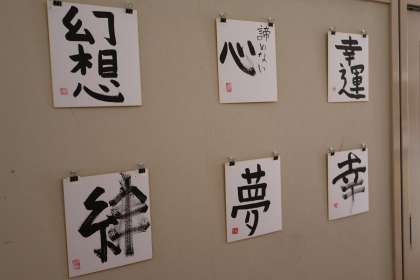 幻想
諦めない
心
幸運
絆
夢
幸